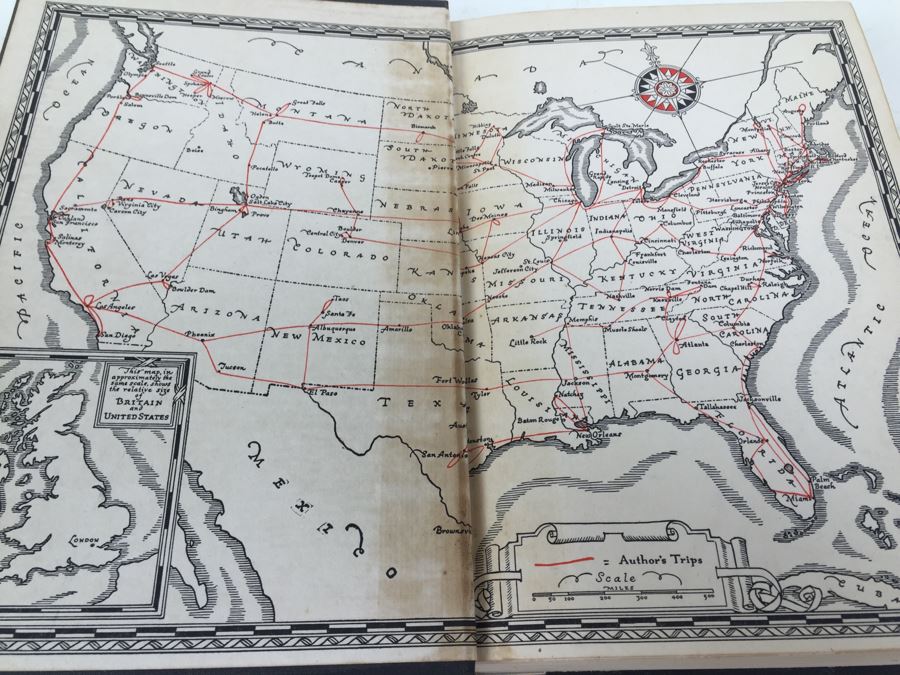 CANADA
OCEAN
PACIFIC
Seattle
Olympia
WASHINGTON
Spokane
Portland
Bonneville Dam
Salem
OREGON
Missoula
Great Falls
Helena
Butte
MONTANA
IDAHO
Boise
Pocatello
NORTH
DAKOTA
Bismarck
SOUTH
DAKOTA
Pierre
WYOMING
Teapot Dome
Casper
Cheyenne
NEBRASKA
NEVADA
Reno
Virginia City
Carson City
Sacramento
Oakland
San Francisco
Salinas
Monterey
CALIFORNIA
Ogden
Salt Lake City
Bingham
Provo
UTAH
Boulder
Central City
Denver
COLORADO
KANSAS
Las Vegas
Boulder Dam
Los Angeles
San Diego
ARIZONA
Phoenix
Tucson
Taos
Santa Fe
Albuquerque
NEW
MEXICO
El Paso
Amarillo
OKLAHOMA
Fort Worth
Tyler
TEXAS
San Antonio
Houston
Brownsville
MEXICO
MINNESOTA
Hibbing
St. Paul
WISCONSIN
Madison
Milwaukee
Chicago
Sault Ste. Marie
Lansing
Detroit
IOWA
Des Moines
ILLINOIS
Springfield
INDIANA
Indianapolis
OHIO
Cleveland
Mansfield
Columbus
Cincinnati
Frankfort
Louisville
KENTUCKY
Kansas City
Jefferson City
St. Louis
MISSOURI
Neosho
ARKANSAS
Little Rock
Memphis
TENNESSEE
Nashville
Norris Dam
Knoxville
Muscle Shoals
MISSISSIPPI
Jackson
Natchez
LOUISIANA
Baton Rouge
New Orleans
ALABAMA
Montgomery
GEORGIA
Atlanta
Tallahassee
Jacksonville
Orlando
FLORIDA
Palm
Beach
Miami
SOUTH
CAROLINA
Columbia
Charleston
NORTH
CAROLINA
Chapel Hill
Raleigh
VIRGINIA
Richmond
Lexington
WEST
VIRGINIA
Charleston
Washington
Baltimore
Annapolis
PENNSYLVANIA
Pittsburgh
Harrisburg
NEW YORK
Buffalo
Rochester
Syracuse
Albany
Montpelier
MAINE
Augusta
Portland
ATLANTIC
OCEAN
CUBA
This map, in
approximately the
same scale, shows
the relative size
of
BRITAIN
and
UNITED STATES
LONDON
= Author's Trips
Scale
MILES
0 50 100 200 300 400 500